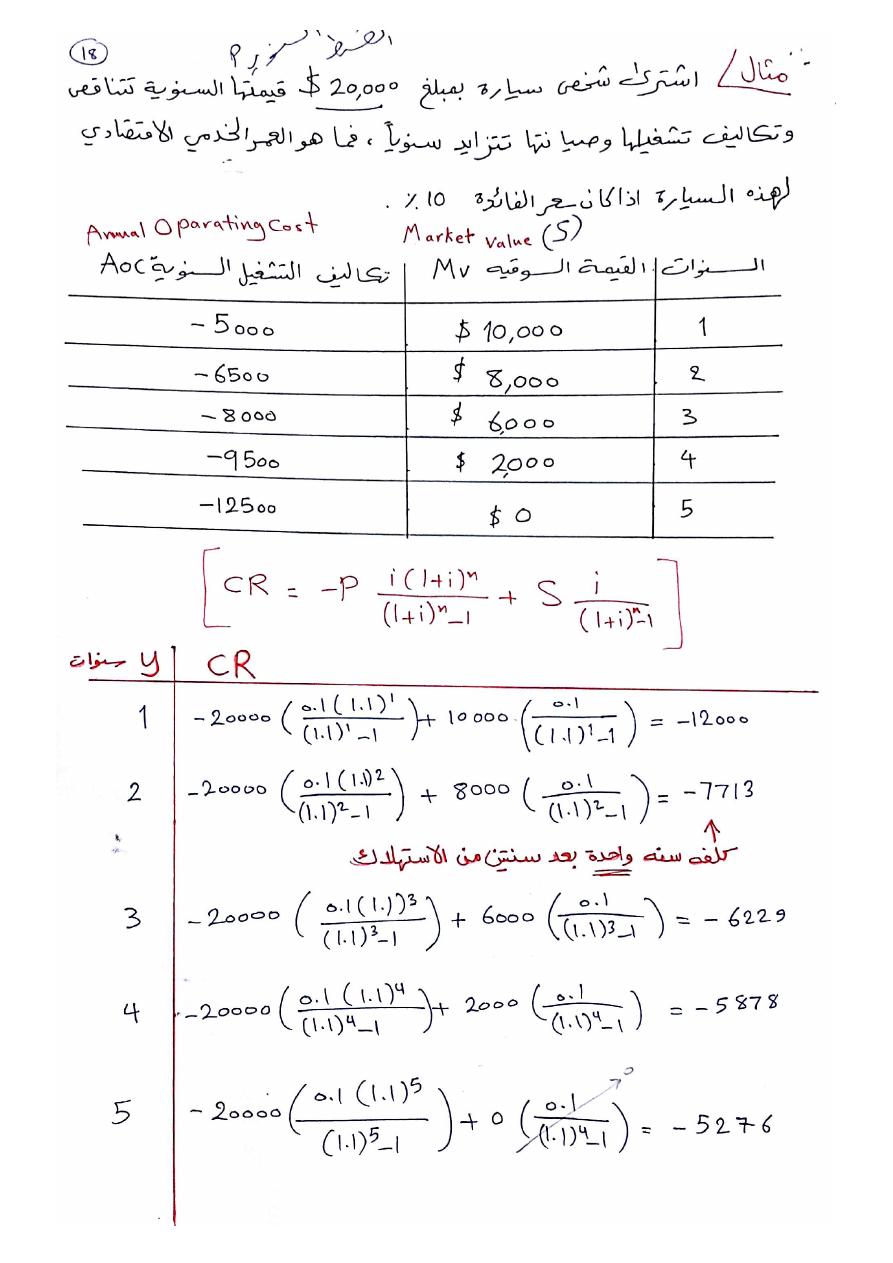 18
القسط السنوي م
مثال/ اشترى شخص سيارة بمبلغ 20,000 $ قيمتها السنوية تتناقص
وتكاليف تشغيلها وصيانتها تتزايد سنوياً، فما هو العمر الخدمي الاقتصادي
لهذه السيارة اذا كان سعر الفائدة 10 ٪ .
Annual Oparating Cost Market value (S)
السنوات القيمة السوقيه Mv تكاليف التشغيل السنوية Aoc
1 $ 10,000 -5000
2 $ 8,000 -6500
3 $ 6,000 -8000
4 $ 2,000 -9500
5 $ 0 -12500
[CR = -P i(1+i)^n/((1+i)^n-1) + S i/((1+i)^n-1)]
سنوات y CR
1 -20000 (0.1(1.1)^1/((1.1)^1-1)) + 10000 (0.1/((1.1)^1-1)) = -12000
2 -20000 (0.1(1.1)^2/((1.1)^2-1)) + 8000 (0.1/((1.1)^2-1)) = -7713
كلفه سنه واحدة بعد سنتين من الاستهلاك
3 -20000 (0.1(1.1)^3/((1.1)^3-1)) + 6000 (0.1/((1.1)^3-1)) = -6229
4 -20000 (0.1(1.1)^4/((1.1)^4-1)) + 2000 (0.1/((1.1)^4-1)) = -5878
5 -20000 (0.1(1.1)^5/((1.1)^5-1)) + 0 (0.1/((1.1)^4-1)) 0 = -5276